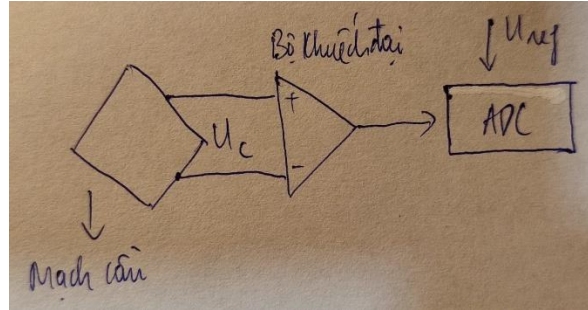 Bộ khuếch đại
Uref
+
Uc
ADC
-
Mạch cầu